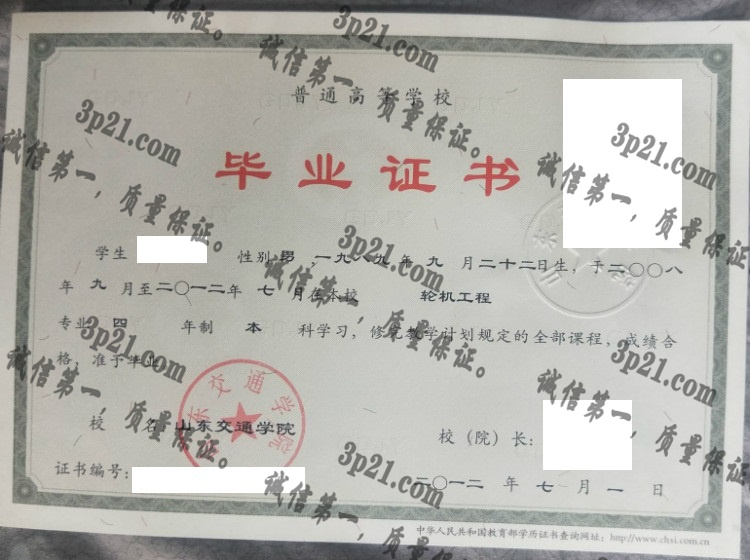 普通高等学校
毕业证书
学生 性别 男，一九八九年 九 月二十二日生，于二〇〇八
年 九 月至二〇一二年 七 月在本校 轮机工程
专业 四 年制 本 科学习，修完教学计划规定的全部课程，成绩合
格，准予毕业。
校 名：山东交通学院
校（院）长：
证书编号：
二〇一二 年 七 月 一 日
中华人民共和国教育部学历证书查询网址：http://www.chsi.com.cn
山东交通学院
3p21.com
诚信第一，质量保证。
3p21.com
诚信第一，质量保证。
3p21.com
诚信第一，质量保证。
3p21.com
诚信第一，质量保证。
3p21.com
诚信第一，质量保证。
3p21.com
诚信第一，质量保证。
3p21.com
诚信第一，质量保证。